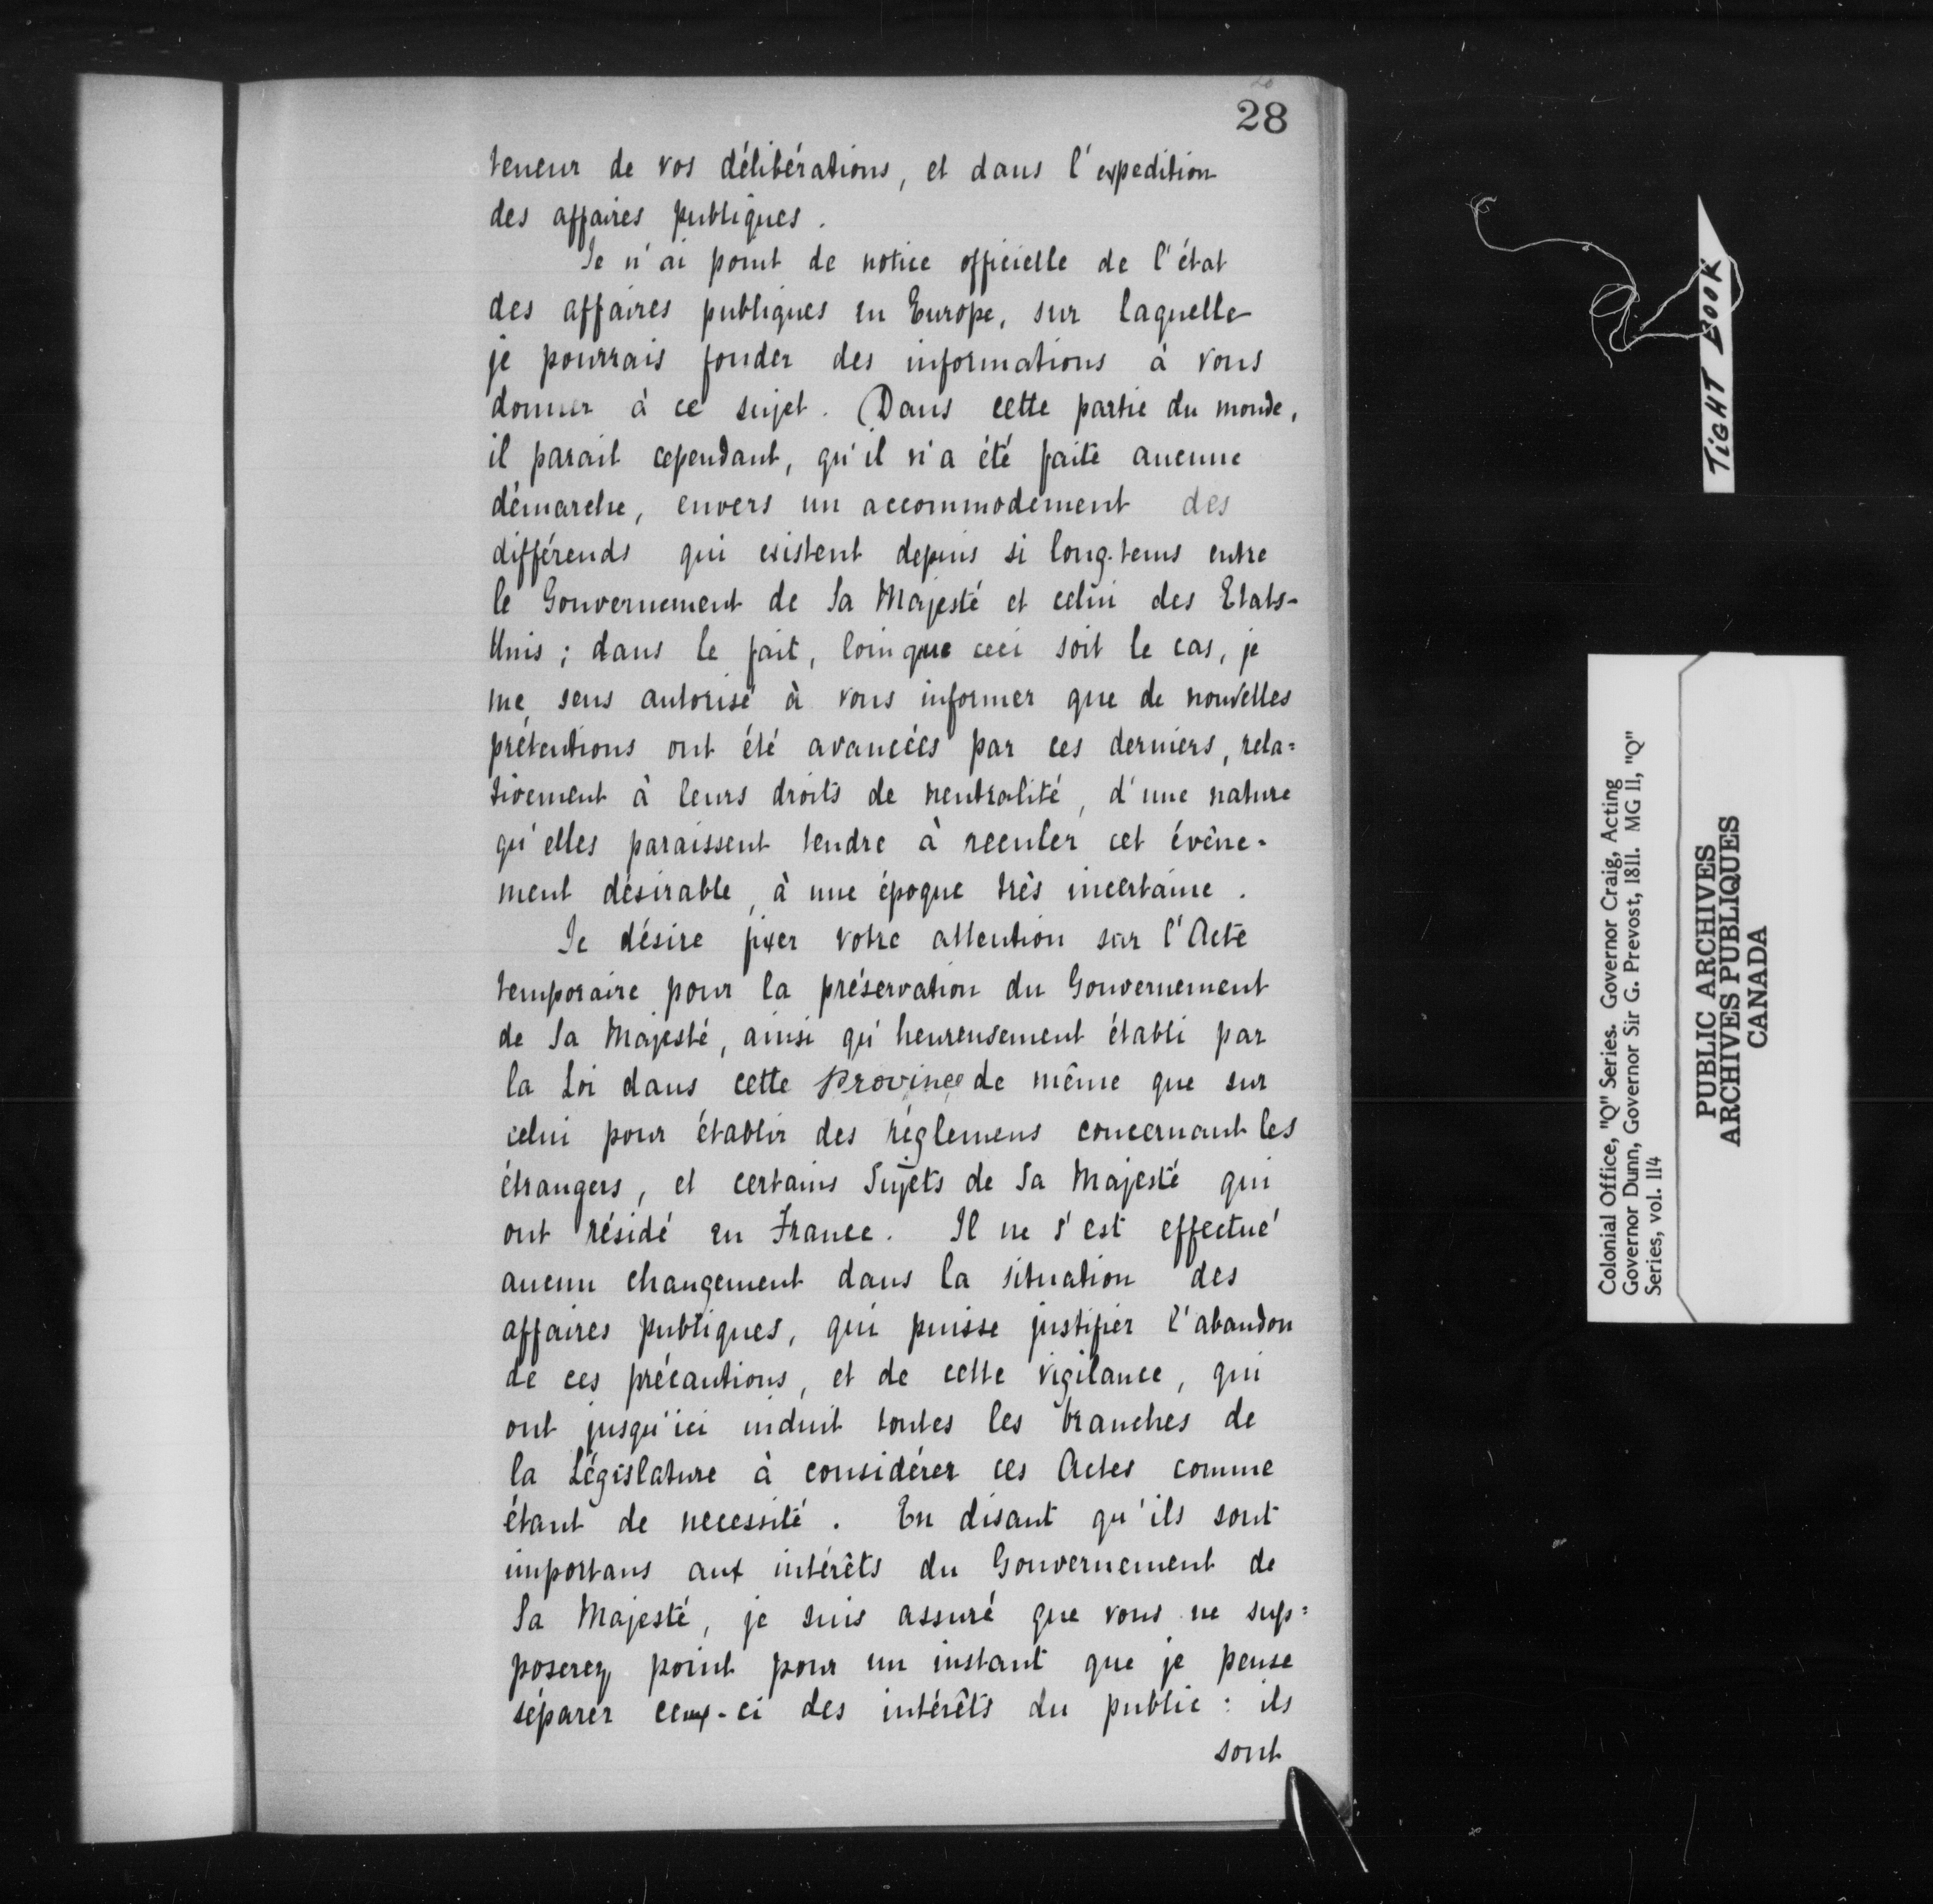 28
teneur de vos délibérations, et dans l'expedition
des affaires publiques.
Je n'ai point de notice officielle de l'état
des affaires publiques en Europe, sur laquelle
je pourrais fonder des informations à vous
donner à ce sujet. Dans cette partie du monde,
il parait cependant, qu'il n'a été faite aucune
démarche, envers un accommodement des
différends qui existent depuis si long-tems entre
le Gouvernement de Sa Majesté et celui des Etats-
Unis; dans le fait, loin que ceci soit le cas, je
me sens autorisé à vous informer que de nouvelles
prétentions ont été avancées par ces derniers, rela=
tivement à leurs droits de neutralité, d'une nature
qu'elles paraissent tendre à reculer cet événe-
ment désirable, à une époque très incertaine.
Je désire fixer votre attention sur l'Acte
temporaire pour la préservation du Gouvernement
de Sa Majesté, ainsi qu'heureusement établi par
la Loi dans cette Province, de même que sur
celui pour établir des réglemens concernant les
étrangers, et certains Sujets de Sa Majesté qui
ont résidé en France. Il ne s'est effectué
aucun changement dans la situation des
affaires publiques, qui puisse justifier l'abandon
de ces précautions, et de cette vigilance, qui
ont jusqu'ici induit toutes les branches de
la Législature à considérer ces Actes comme
étant de necessité. En disant qu'ils sont
importans aux intérêts du Gouvernement de
Sa Majesté, je suis assuré que vous ne sup=
poserez point pour un instant que je pense
séparer ceux-ci des intérêts du public: ils
sont
TIGHT BOOK
Colonial Office, "Q" Series. Governor Craig, Acting
Governor Dunn, Governor Sir G. Prevost, 1811. MG 11, "Q"
Series, vol. 114
PUBLIC ARCHIVES
ARCHIVES PUBLIQUES
CANADA